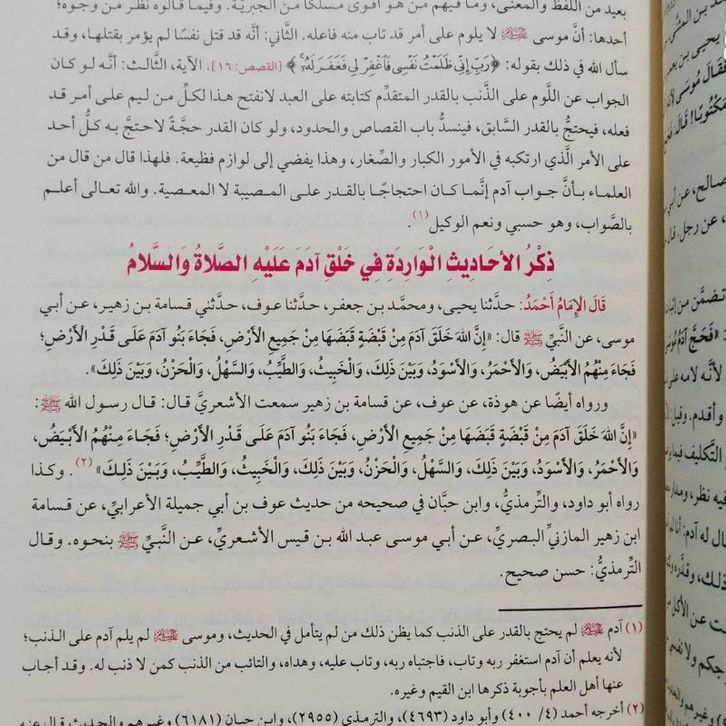 بعيد من اللفظ والمعنى، وما فيهم من هو أقوى مسلكًا من الجبرية. وفيما قالوه نظر من وجوه؛
أحدها: أنَّ موسى ﷺ لا يلوم على أمر قد تاب منه فاعله. الثَّاني: أنَّه قد قتل نفسًا لم يؤمر بقتلها، وقد
سأل الله في ذلك بقوله: ﴿رَبِّ إِنِّي ظَلَمْتُ نَفْسِي فَاغْفِرْ لِي فَغَفَرَ لَهُ﴾ [القصص: ١٦]. الآية، الثَّالث: أنَّه لو كان
الجواب عن اللَّوم على الذَّنب بالقدر المتقدِّم كتابته على العبد لانفتح هذا لكلِّ من ليم على أمر قد
فعله، فيحتجُّ بالقدر السَّابق، فينسدُّ باب القصاص والحدود، ولو كان القدر حجَّةً لاحتجَّ به كلُّ أحد
على الأمر الَّذي ارتكبه في الأمور الكبار والصِّغار، وهذا يفضي إلى لوازم فظيعة. فلهذا قال من قال من
العلماء بـأنَّ جواب آدم إنَّما كـان احتجاجًـا بالقدر علـى المـصيبة لا المعـصية. والله تعـالى أعلـم
بالصَّواب، وهو حسبي ونعم الوكيل(١).
ذِكْرُ الأَحَادِيثِ الْوَارِدَةِ فِي خَلْقِ آدَمَ عَلَيْهِ الصَّلاةُ وَالسَّلامُ
قَالَ الإِمَامُ أَحْمَدُ: حدَّثنا يحيى، ومحمَّد بن جعفر، حدَّثنا عوف، حدَّثني قسامة بن زهير، عن أبي
موسى، عن النَّبيِّ ﷺ قال: «إِنَّ اللهَ خَلَقَ آدَمَ مِنْ قَبْضَةٍ قَبَضَهَا مِنْ جَمِيعِ الأَرْضِ، فَجَاءَ بَنُو آدَمَ عَلَى قَدْرِ الأَرْضِ؛
فَجَاءَ مِنْهُمُ الأَبْيَضُ، وَالأَحْمَرُ، وَالأَسْوَدُ، وَبَيْنَ ذَلِكَ، وَالْخَبِيثُ، وَالطَّيِّبُ، وَالسَّهْلُ، وَالْحَزْنُ، وَبَيْنَ ذَلِكَ».
ورواه أيضًا عن هوذة، عن عوف، عن قسامة بن زهير سمعت الأشعريَّ قال: قال رسول الله ﷺ:
«إِنَّ اللهَ خَلَقَ آدَمَ مِنْ قَبْضَةٍ قَبَضَهَا مِنْ جَمِيعِ الأَرْضِ، فَجَاءَ بَنُو آدَمَ عَلَى قَدْرِ الأَرْضِ؛ فَجَاءَ مِنْهُمُ الأَبْيَضُ،
وَالأَحْمَرُ، وَالأَسْوَدُ، وَبَيْنَ ذَلِكَ، وَالسَّهْلُ، وَالْحَزْنُ، وَبَيْنَ ذَلِكَ، وَالْخَبِيثُ، وَالطَّيِّبُ، وَبَيْنَ ذَلِكَ»(٢). وكذا
رواه أبو داود، والتِّرمذيُّ، وابن حبَّان في صحيحه من حديث عوف بن أبي جميلة الأعرابيِّ، عن قسامة
ابن زهير المازنيِّ البصريِّ، عن أبي موسى عبد الله بن قيس الأشعريِّ، عن النَّبيِّ ﷺ بنحوه. وقال
التِّرمذيُّ: حسن صحيح.
(١) آدم ﷺ لم يحتج بالقدر على الذنب كما يظن ذلك من لم يتأمل في الحديث، وموسى ﷺ لم يلم آدم على الذنب؛
لأنه يعلم أن آدم استغفر ربه وتاب، فاجتباه ربه، وتاب عليه، وهداه، والتائب من الذنب كمن لا ذنب له. وقد أجاب
عنها أهل العلم بأجوبة ذكرها ابن القيم وغيره.
(٢) أخرجه أحمد (٤/ ٤٠٠) وأبو داود (٤٦٩٣)، والترمذي (٢٩٥٥)، وابن حبان (٦١٨١) وغيرهم والحديث قال عنه